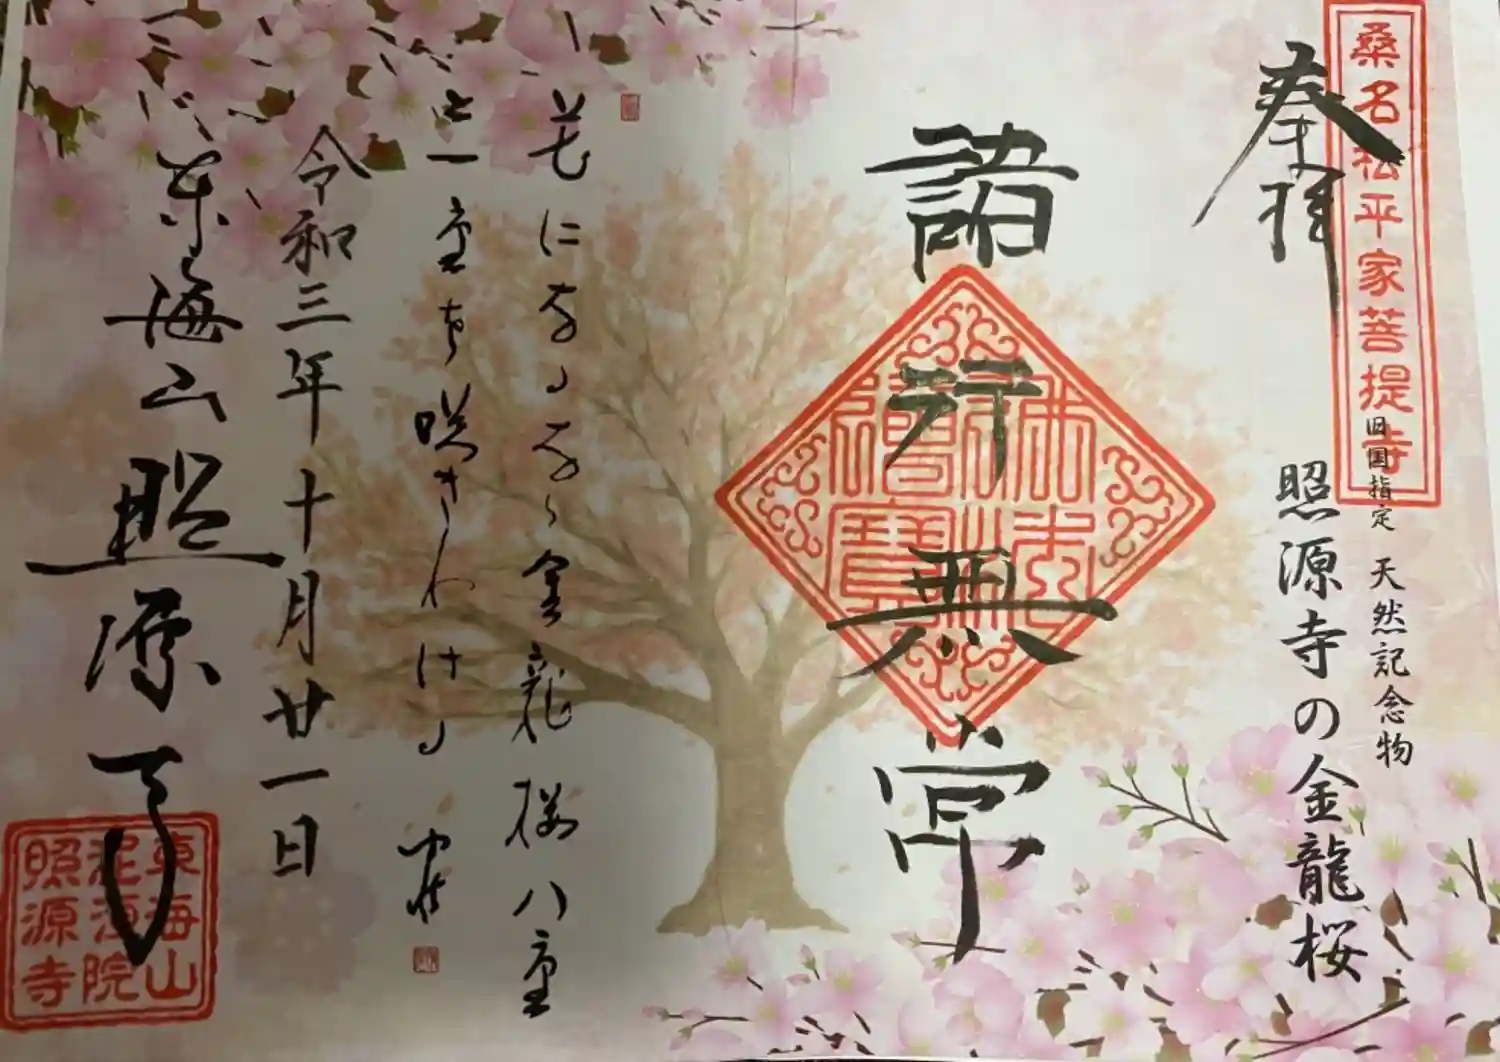 桑名松平家菩提寺
奉拝
旧国指定 天然記念物
照源寺の金龍桜
諸行無常
佛法僧寶
花になる 金龍桜八重
一重 咲き わける
令和三年十月廿一日
東海山照源寺
東海山
院
照源寺